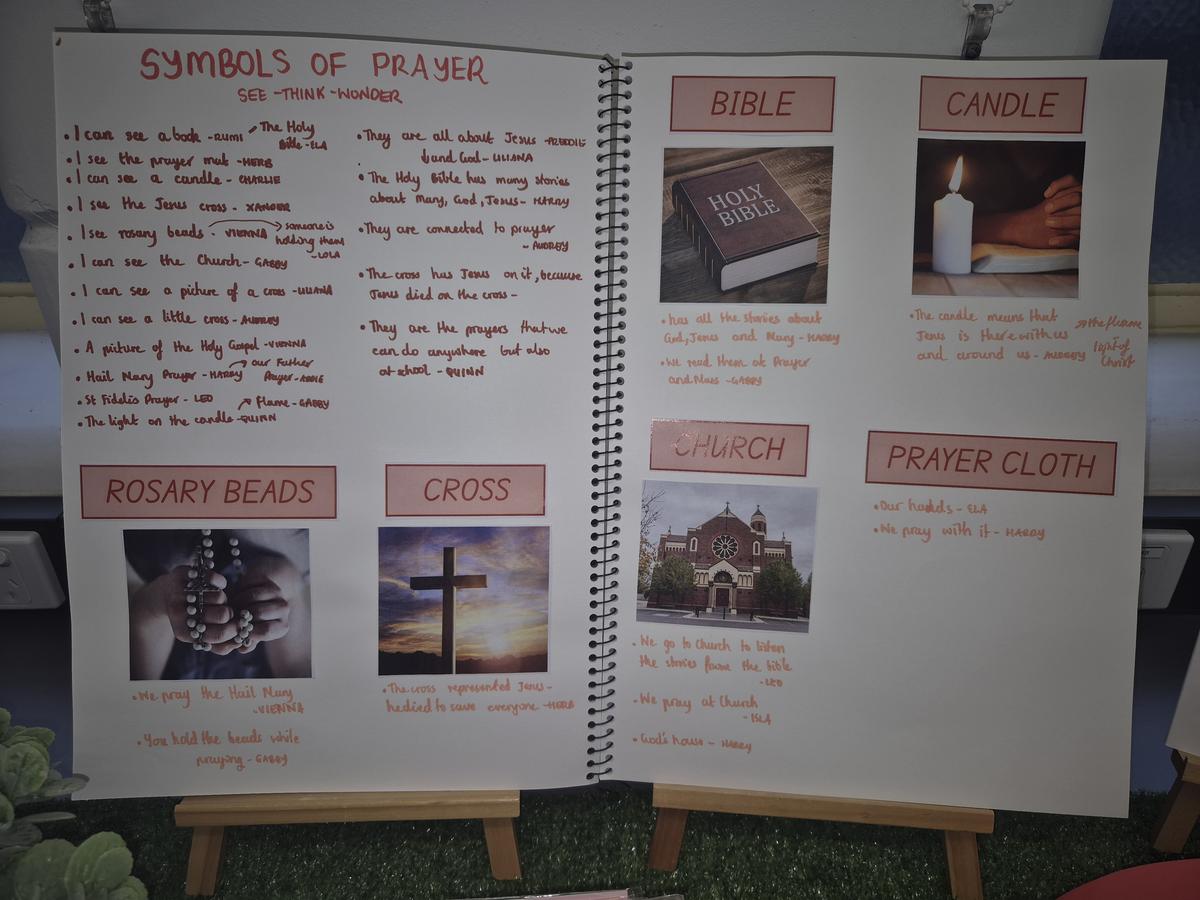 SYMBOLS OF PRAYER
SEE-THINK-WONDER
• I can see a book - RUMI
The Holy
Bible - ELA
• I see the prayer mat - HERB
• I can see a candle - CHARLIE
• I see the Jesus cross - XANDER
• I see rosary beads - VIENNA
someone is
holding them
- LOLA
• I can see the Church - GABBY
• I can see a picture of a cross - LILIANA
• I can see a little cross - AUDREY
• A picture of the Holy Gospel - VIENNA
• Hail Mary Prayer - HARRY
our Father
Prayer - ABBIE
• St Fidelis Prayer - LEO
• The light on the candle - QUINN
Flame - GABBY
• They are all about Jesus - FREDDIE
and God - LILIANA
• The Holy Bible has many stories
about Mary, God, Jesus - HARRY
• They are connected to prayer
- AUDREY
• The cross has Jesus on it, because
Jesus died on the cross -
• They are the prayers that we
can do anywhere but also
at school - QUINN
ROSARY BEADS
• We pray the Hail Mary
- VIENNA
• You hold the beads while
praying - GABBY
CROSS
• The cross represented Jesus -
he died to save everyone - HERB
BIBLE
HOLY
BIBLE
• has all the stories about
God, Jesus and Mary - HARRY
• We read them at Prayer
and Mass - GABBY
CANDLE
• The candle means that
Jesus is there with us
and around us - AUDREY
the flame
light of
Christ
CHURCH
• We go to Church to listen
the stories from the bible
- LEO
• We pray at Church
- ISLA
• God's house - HARRY
PRAYER CLOTH
• Our hands - ELA
• We pray with it - HARRY